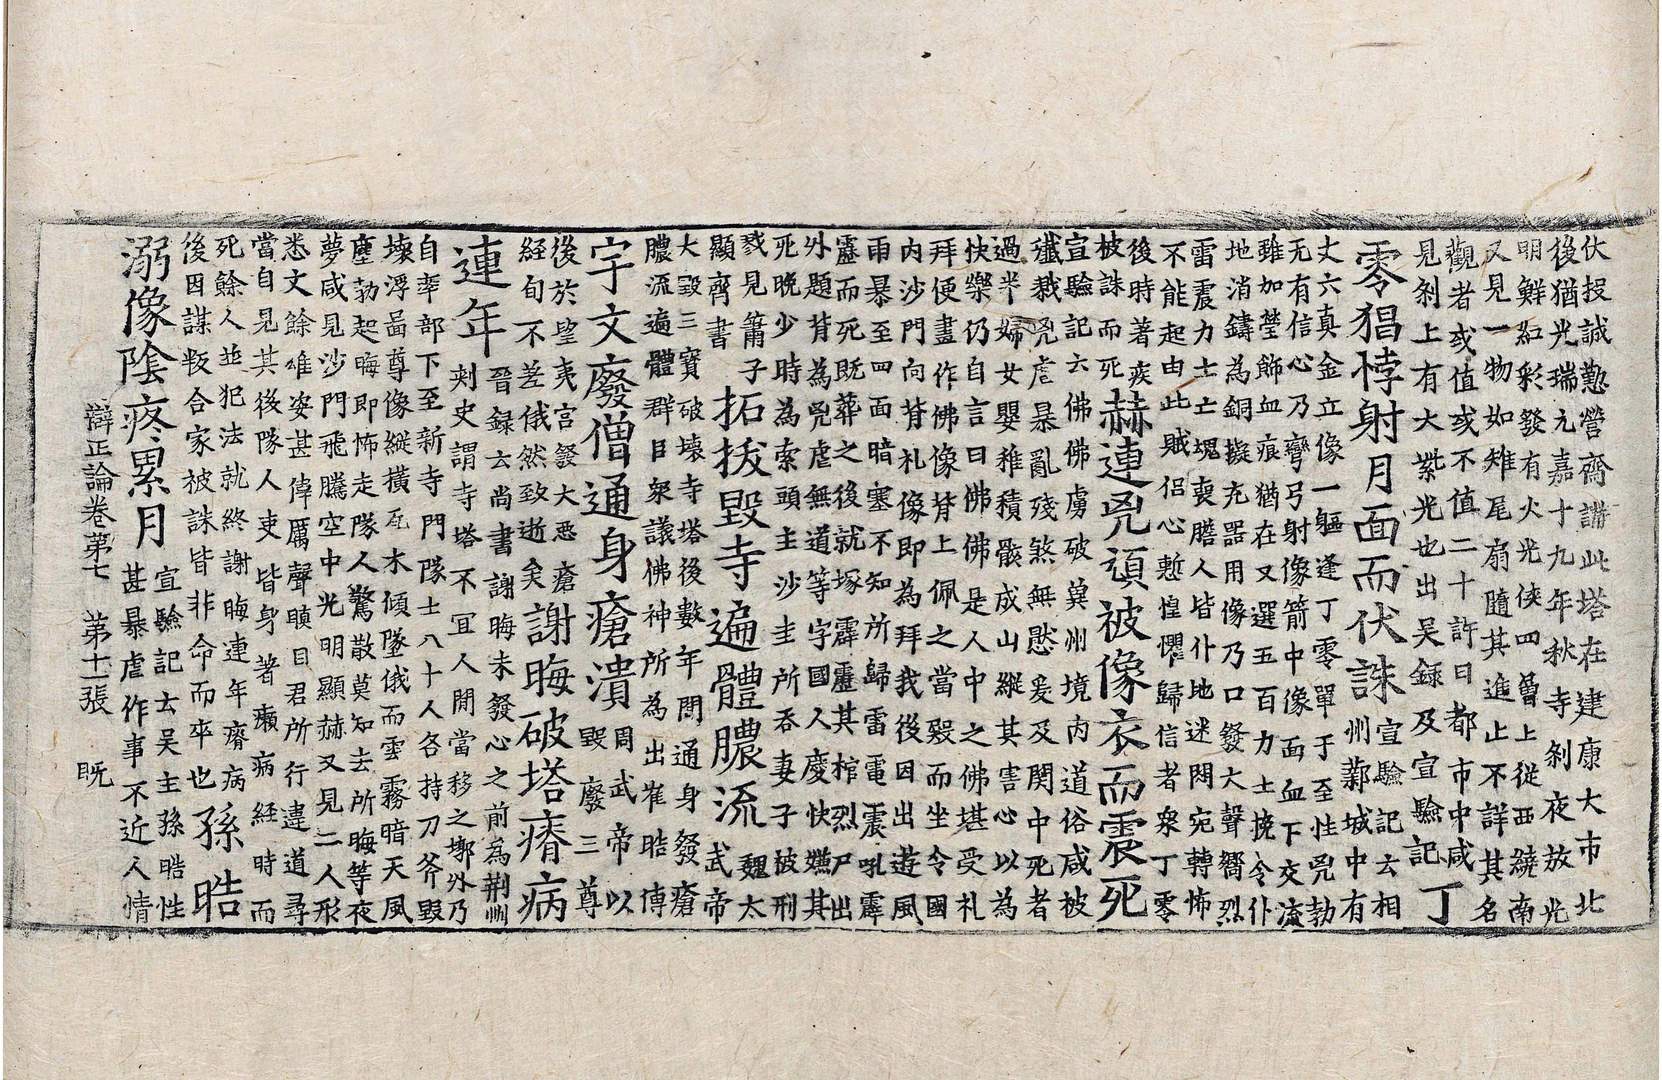 伏投誠懃營齋講此塔在建康大市北
後猶光瑞元嘉十九年秋寺剎夜放光
明鮮紅彩發有火光俠四曾上從西繞南
又見一物如雉尾扇隨其進止不詳其名
觀者或值或不值二十許日都市中咸
見剎上有大紫光也出吳錄及宣驗記
丁
零猖悖射月面而伏誅
宣驗記云相
州鄴城中有
丈六真金立像一軀逢丁零單于至性兇勃
无有信心乃彎弓射像箭中像面血下交流
雖加瑩飾血痕猶在又選五百力士挽令仆
地消鑄為銅擬充器用像乃口發大聲嚮烈
雷震力士亡塊喪膽人皆仆地迷悶宛轉怖
不能起由此賊侶心慙惶懼歸信者衆丁零
後時著疾
被誅而死
赫連兇頑被像衣而震死
宣驗記云佛佛虜破冀州境內道俗咸被
殲戮兇虐暴亂殘煞無愍爰及関中死者
過半婦女嬰稚積骸成山縱其害心以為
快樂仍自言曰佛佛是人中之佛堪受礼
拜便畫作佛像背上佩之當殿而坐令國
內沙門向背礼像即為拜我後因出遊風
雨暴至四面暗塞不知所歸雷電震吼霹
靂而死既葬之後就塚霹靂其棺烈尸出
外題背為兇虐無道等字國人慶快嫌其
死晚少時為索頭主沙圭所吞妻子被刑
戮見簫子
顯齊書
拓拔毀寺遍體膿流
魏太
武帝
大毀三寶破壞寺塔後數年間通身發瘡
膿流遍體群臣衆議佛神所為出崔晧傳
宇文廢僧通身瘡潰
周武帝以
毀廢三尊
後於望夷宮發大惡瘡
經旬不差俄然致逝矣
謝晦破塔瘠病
連年
晉録云尚書謝晦未發心之前為荊州
刺史謂寺塔不冝人閒當移之墎外乃
自率部下至新寺門隊士八十人各持刀斧毀
壞浮啚尊像縱橫瓦木傾墜俄而雲霧暗天風
塵勃起晦即怖走隊人驚散莫知去所晦等夜
夢咸見沙門飛騰空中光明顯赫又見二人形
悉丈餘雄姿甚偉厲聲瞋目君所行違道尋
當自見其後隊人吏皆身著癩病經時而
死餘人並犯法就終謝晦連年瘠病
後因謀叛合家被誅皆非命而卒也
孫晧
溺像陰疼累月
宣驗記云吳主孫晧性
甚暴虐作事不近人情
辯正論卷第七 第十二張 旣